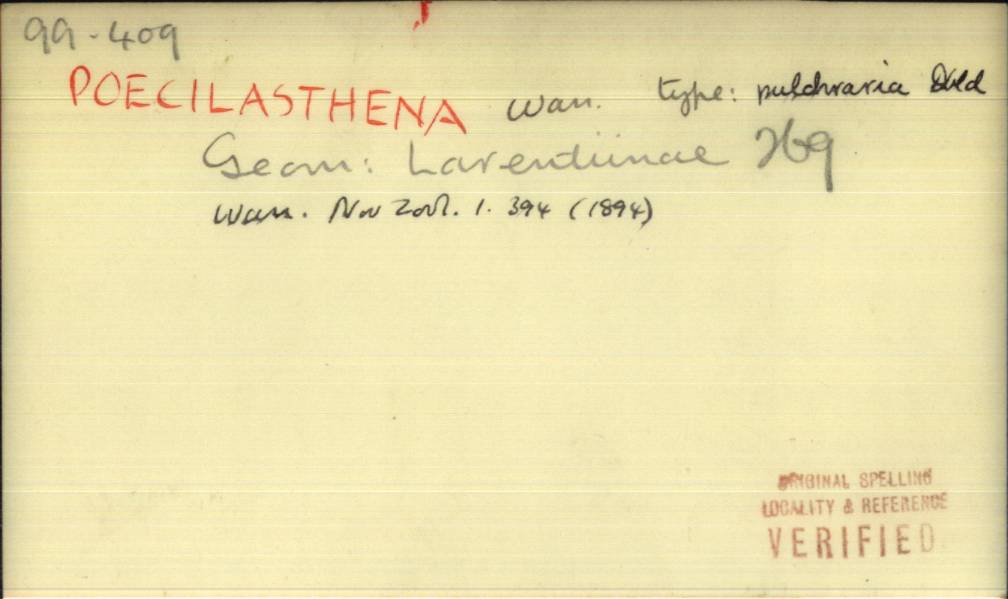 99-409
POECILASTHENA Warr. type: pulchraria Dbld
Geom: Larentiinae 269
Warr. Nov Zool. 1. 394 (1894)
ORIGINAL SPELLING
LOCALITY & REFERENCE
VERIFIED